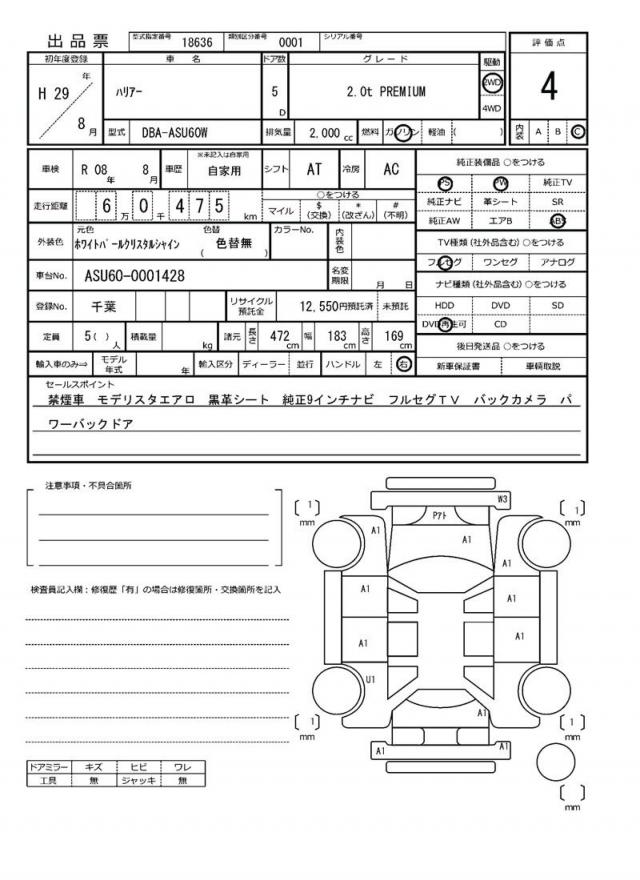 出品票 型式指定番号 18636 類別区分番号 0001 シリアル番号
評価点
4
内装 A B C
初年度登録 車名 ドア数 グレード 駆動
H 29 年 8 月
ハリアー 5 D 2.0t PREMIUM 2WD 4WD
型式 DBA-ASU60W 排気量 2,000 cc 燃料 ガソリン 軽油 ( )
車検 R 08 年 8 月 車歴 ※未記入は自家用 自家用 シフト AT 冷房 AC
走行距離 6 万 0 千 4 7 5 km ○をつける
マイル $(交換) *(改ざん) #(不明)
外装色 元色 ホワイトパールクリスタルシャイン 色替 ( 色替無 ) カラーNo. 内装色
車台No. ASU60-0001428 名変期限 月 日
登録No. 千葉 リサイクル預託金 12,550円預託済 未預託
定員 5( ) 人 積載量 kg 諸元 長さ 472 cm 幅 183 cm 高さ 169 cm
輸入車のみ⇒ モデル年式 年 輸入区分 ディーラー 並行 ハンドル 左 右
純正装備品 ○をつける
PS PW 純正TV
純正ナビ 革シート SR
純正AW エアB ABS
TV種類(社外品含む) ○をつける
フルセグ ワンセグ アナログ
ナビ種類(社外品含む) ○をつける
HDD DVD SD
DVD再生可 CD
後日発送品 ○をつける
新車保証書 車輌取説
セールスポイント
禁煙車 モデリスタエアロ 黒革シート 純正9インチナビ フルセグTV バックカメラ パ
ワーバックドア
注意事項・不具合箇所
検査員記入欄:修復歴「有」の場合は修復箇所・交換箇所を記入
ドアミラー キズ ヒビ ワレ
工具 無 ジャッキ 無
W3
[ 1 ] mm
Pアト
[ 1 ] mm
A1
A1
A1
A1
A1
A1
A1
U1
A1
[ 1 ] mm
[ 1 ] mm
A1
A1
[ ] mm